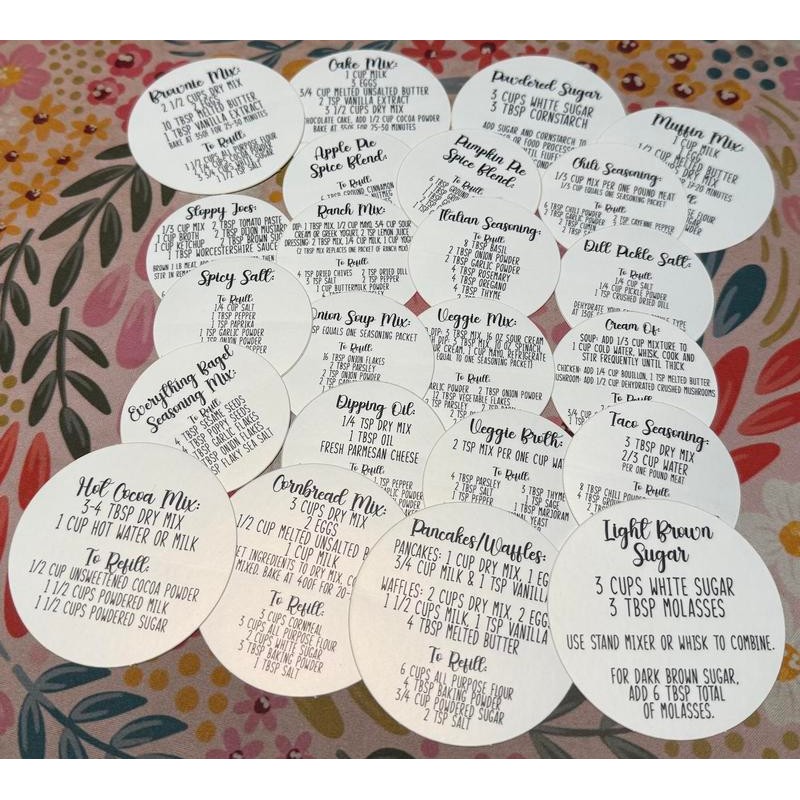 Brownie Mix:
2 1/2 CUPS DRY MIX
2 EGGS
10 TBSP MELTED BUTTER
1 TBSP VANILLA EXTRACT
BAKE AT 350F FOR 25-30 MINUTES
To Refill:
1 1/2 CUPS ALL PURPOSE FLOUR
Cake Mix:
1 CUP MILK
3 EGGS
3/4 CUP MELTED UNSALTED BUTTER
2 TSP VANILLA EXTRACT
3 1/2 CUPS DRY MIX
CHOCOLATE CAKE, ADD 1/2 CUP COCOA POWDER
BAKE AT 350F FOR 25-30 MINUTES
Powdered Sugar
3 CUPS WHITE SUGAR
3 TBSP CORNSTARCH
ADD SUGAR AND CORNSTARCH TO
OR FOOD PROCESSO
UNTIL FLUFF
Muffin Mix:
1 CUP MILK
1 EGG
CUP MELTED BUTTER
DRY MIX
Apple Pie
Spice Blend:
To Refill:
GROUND CINNAMON
Pumpkin Pie
Spice Blend:
To Refill:
Chili Seasoning:
1/3 CUP MIX PER ONE POUND MEAT
1/3 CUP EQUALS ONE SEASONING PACKET
To Refill:
6 TBSP CHILI POWDER
2 TBSP GARLIC POWDER
1 TSP CAYENNE PEPPER
CUP CUMIN
Sloppy Joes:
1/3 CUP MIX 2 TBSP TOMATO PASTE
1 CUP BROTH 2 TBSP DIJON MUSTARD
1 CUP KETCHUP 2 TBSP BROWN SUG
1 TBSP WORCESTERSHIRE SAUCE
BROWN 1 LB MEAT, THEN
STIR IN REMAIN
Ranch Mix:
DIP: 1 TBSP MIX, 1/2 CUP MAYO, 3/4 CUP SOUR
CREAM OR GREEK YOGURT, 2 TSP LEMON JUICE
DRESSING: 2 TBSP MIX, 1/4 CUP MILK, 1 CUP YOG
(2 TBSP MIX REPLACES ONE PACKET OF RANCH MIX)
To Refill:
4 TSP DRIED CHIVES 2 TSP DRIED DILL
4 TSP PARSLEY 2 TSP PEPPER
1 CUP BUTTERMILK POWDER
Italian Seasoning:
To Refill:
8 TBSP BASIL
2 TBSP ONION POWDER
2 TBSP GARLIC POWDER
4 TBSP ROSEMARY
4 TBSP OREGANO
4 TBSP THYME
Dill Pickle Salt:
To Refill:
1/4 CUP SALT
1/4 CUP PICKLE POWDER
1 TSP CRUSHED DRIED DILL
DEHYDRATE YOUR
TYPE
Spicy Salt:
To Refill:
1/4 CUP SALT
1 TBSP PEPPER
1 TSP PAPRIKA
1 TSP GARLIC POWDER
TSP PEPPER
Onion Soup Mix:
TBSP EQUALS ONE SEASONING PACKET
To Refill:
16 TBSP ONION FLAKES
2 TBSP PARSLEY
2 TSP ONION POWDER
Veggie Mix:
DIP: 3 TBSP MIX, 16 OZ SOUR CREAM
DIP: 3 TBSP MIX, 10 OZ SPINACH,
OUR CREAM, 1 CUP MAYO, REFRIGERATE
EQUAL TO ONE SEASONING PACKET)
To Refill:
GARLIC POWDER 2 TBSP ONION POWDER
12 TBSP VEGETABLE FLAKES
TBSP PARSLEY
Cream Of:
SOUP: ADD 1/3 CUP MIXTURE TO
1 CUP COLD WATER, WHISK, COOK AND
STIR FREQUENTLY UNTIL THICK
CHICKEN: ADD 1/4 CUP BOUILLON, 1 TSP MELTED BUTTER
USHROOM: ADD 1/2 CUP DEHYDRATED CRUSHED MUSHROOMS
To Refill
Everything Bagel
Seasoning Mix:
To Refill:
4 TBSP SESAME SEEDS
4 TBSP POPPY SEEDS
GARLIC FLAKES
ONION FLAKES
SP FLAKY SEA SALT
Dipping Oil:
1/4 TSP DRY MIX
1 TBSP OIL
FRESH PARMESAN CHEESE
To Refill:
Veggie Broth:
2 TSP MIX PER ONE CUP WA
To Refill:
4 TBSP PARSLEY 3 TBSP THYME
2 TBSP SALT 1 TSP SAGE
1 TSP PEPPER 1 TBSP MARJORAM
ONAL YEAST
Taco Seasoning:
3 TBSP DRY MIX
2/3 CUP WATER
PER ONE POUND MEAT
To Refill:
8 TBSP CHILI POWD
4 TBSP
Hot Cocoa Mix:
3-4 TBSP DRY MIX
1 CUP HOT WATER OR MILK
To Refill:
1/2 CUP UNSWEETENED COCOA POWDER
1 1/2 CUPS POWDERED MILK
1 1/2 CUPS POWDERED SUGAR
Cornbread Mix:
3 CUPS DRY MIX
2 EGGS
1/2 CUP MELTED UNSALTED B
1 CUP MILK
ET INGREDIENTS TO DRY MIX, CO
MIXED. BAKE AT 400F FOR 20-
To Refill:
3 CUPS CORNMEAL
3 CUPS ALL PURPOSE FLOUR
2 CUPS WHITE SUGAR
3 TBSP BAKING POWDER
1 TBSP SALT
Pancakes/Waffles:
PANCAKES: 1 CUP DRY MIX, 1 EG
3/4 CUP MILK & 1 TSP VANILL
WAFFLES: 2 CUPS DRY MIX, 2 EGG
1 1/2 CUPS MILK, 1 TSP VANILLA
4 TBSP MELTED BUTTER
To Refill:
6 CUPS ALL PURPOSE FLOUR
4 TBSP BAKING POWDER
3/4 CUP POWDERED SUGAR
2 TSP SALT
Light Brown
Sugar
3 CUPS WHITE SUGAR
3 TBSP MOLASSES
USE STAND MIXER OR WHISK TO COMBINE.
FOR DARK BROWN SUGAR,
ADD 6 TBSP TOTAL
OF MOLASSES.